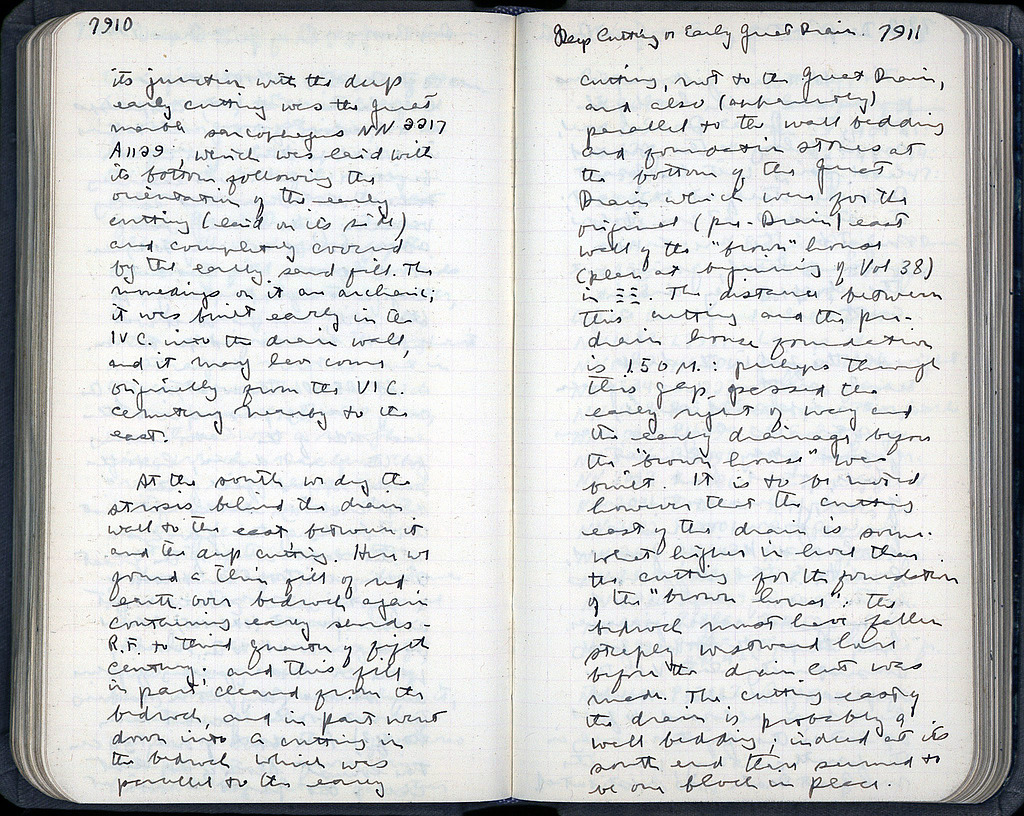 7910
its junction with the deep
early cutting was the great
marble sarcophagus NN 2217
A1129, which was laid with
its bottom following the
orientation of the early
cutting (laid on its side)
and completely covered
by the early sand fill. The
mouldings on it are archaic;
it was built early in the
IV C. into the drain wall,
and it may have come
originally from the VI C.
cemetery nearby to the
east.
At the south we dug the
strosis behind the drain
wall to the east, between it
and the deep cutting. Here we
found a thin fill of red
earth over bedrock again
containing early sherds -
R.F. to third quarter of fifth
century; and this fill
in part cleared from the
bedrock, and in part went
down into a cutting in
the bedrock which was
parallel to the early
Deep Cutting or Early Great Drain. 7911
cutting, not to the Great Drain,
and also (apparently)
parallel to the wall bedding
and foundation stones at
the bottom of the Great
Drain which were for the
original (pre-Drain) east
wall of the "brown" house
(plan at beginning of Vol 38)
in ΞΞ. The distance between
this cutting and the pre-
drain house foundation
is 1.50 M.: perhaps through
this gap passed the
early right of way and
the early drainage before
the "brown house" was
built. It is to be noted
however that the cutting
east of the drain is some-
what higher in level than
the cutting for the foundation
of the "brown house". The
bedrock must have fallen
steeply westward here
before the drain cut was
made. The cutting east of
the drain is probably a
wall bedding; indeed at its
south end there seemed to
be one block in place.